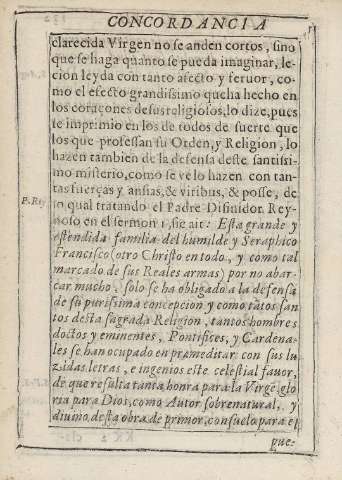 CONCORDANCIA
clarecida Virgen no se anden cortos, sino
que se haga quanto se pueda imaginar, le-
cion leyda con tanto afecto y feruor, co-
mo el efecto grandissimo que ha hecho en
los coraçones de sus religiosos, lo dize, pues
se imprimio en los de todos de suerte que
los que professan su Orden, y Religion, lo
hazen tambien de la defensa deste santissi-
mo misterio, como se ve lo hazen con tan-
tas fuerças y ansias, & viribus, & posse, de
P. Rey lo qual tratando el Padre Difinidor Rey-
noso en el sermon 1, sic ait: Esta grande y
estendida familia del humilde y Seraphico
Francisco (otro Christo en todo, y como tal
marcado de sus Reales armas) por no abar-
car mucho, solo se ha obligado a la defensa
de su purissima concepcion y como tãtos san
tos desta sagrada Religion, tantos hombres
doctos y eminentes, Pontifices, y Cardena-
les se han ocupado en premeditar con sus lu
zidas letras, e ingenios este celestial fauor,
de que resulta tanta honra para la Virgẽ, glo
ria para Dios, como Autor sobrenatural, y
diuino desta obra de primor, consuelo para el
pue-